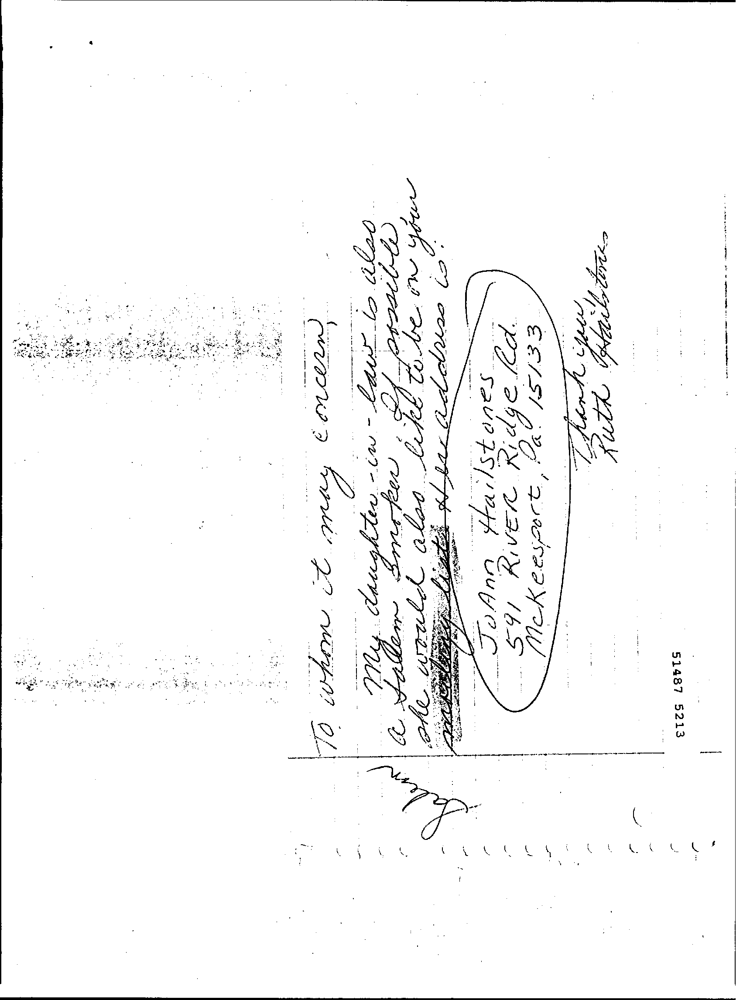 To whom it may concern,
My daughter-in-law is also
a Salem Smoker if possible
she would also like to be on your
mailing list. Her address is:
JoAnn Hailstones
591 RIVER Ridge Rd.
McKeesport, Pa. 15133
Thank you,
Ruth Hailstones
Salem
51487 5213